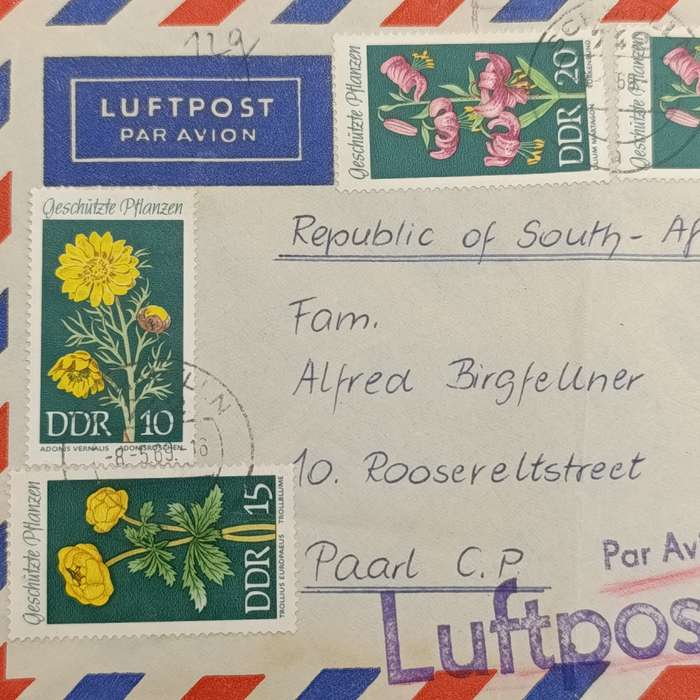 129
LUFTPOST
PAR AVION
Geschützte Pflanzen
DDR 20
LILIUM MARTAGON
Geschützte Pflanzen
Geschützte Pflanzen
DDR 10
ADONIS VERNALIS ADONISRÖSCHEN
-8.-5.69.-16
Geschützte Pflanzen
DDR 15
TROLLIUS EUROPAEUS TROLLBLUME
Republic of South-Af
Fam.
Alfred Birgfellner
10. Roosereltstreet
Paarl C.P.
Par Avi
Luftpos